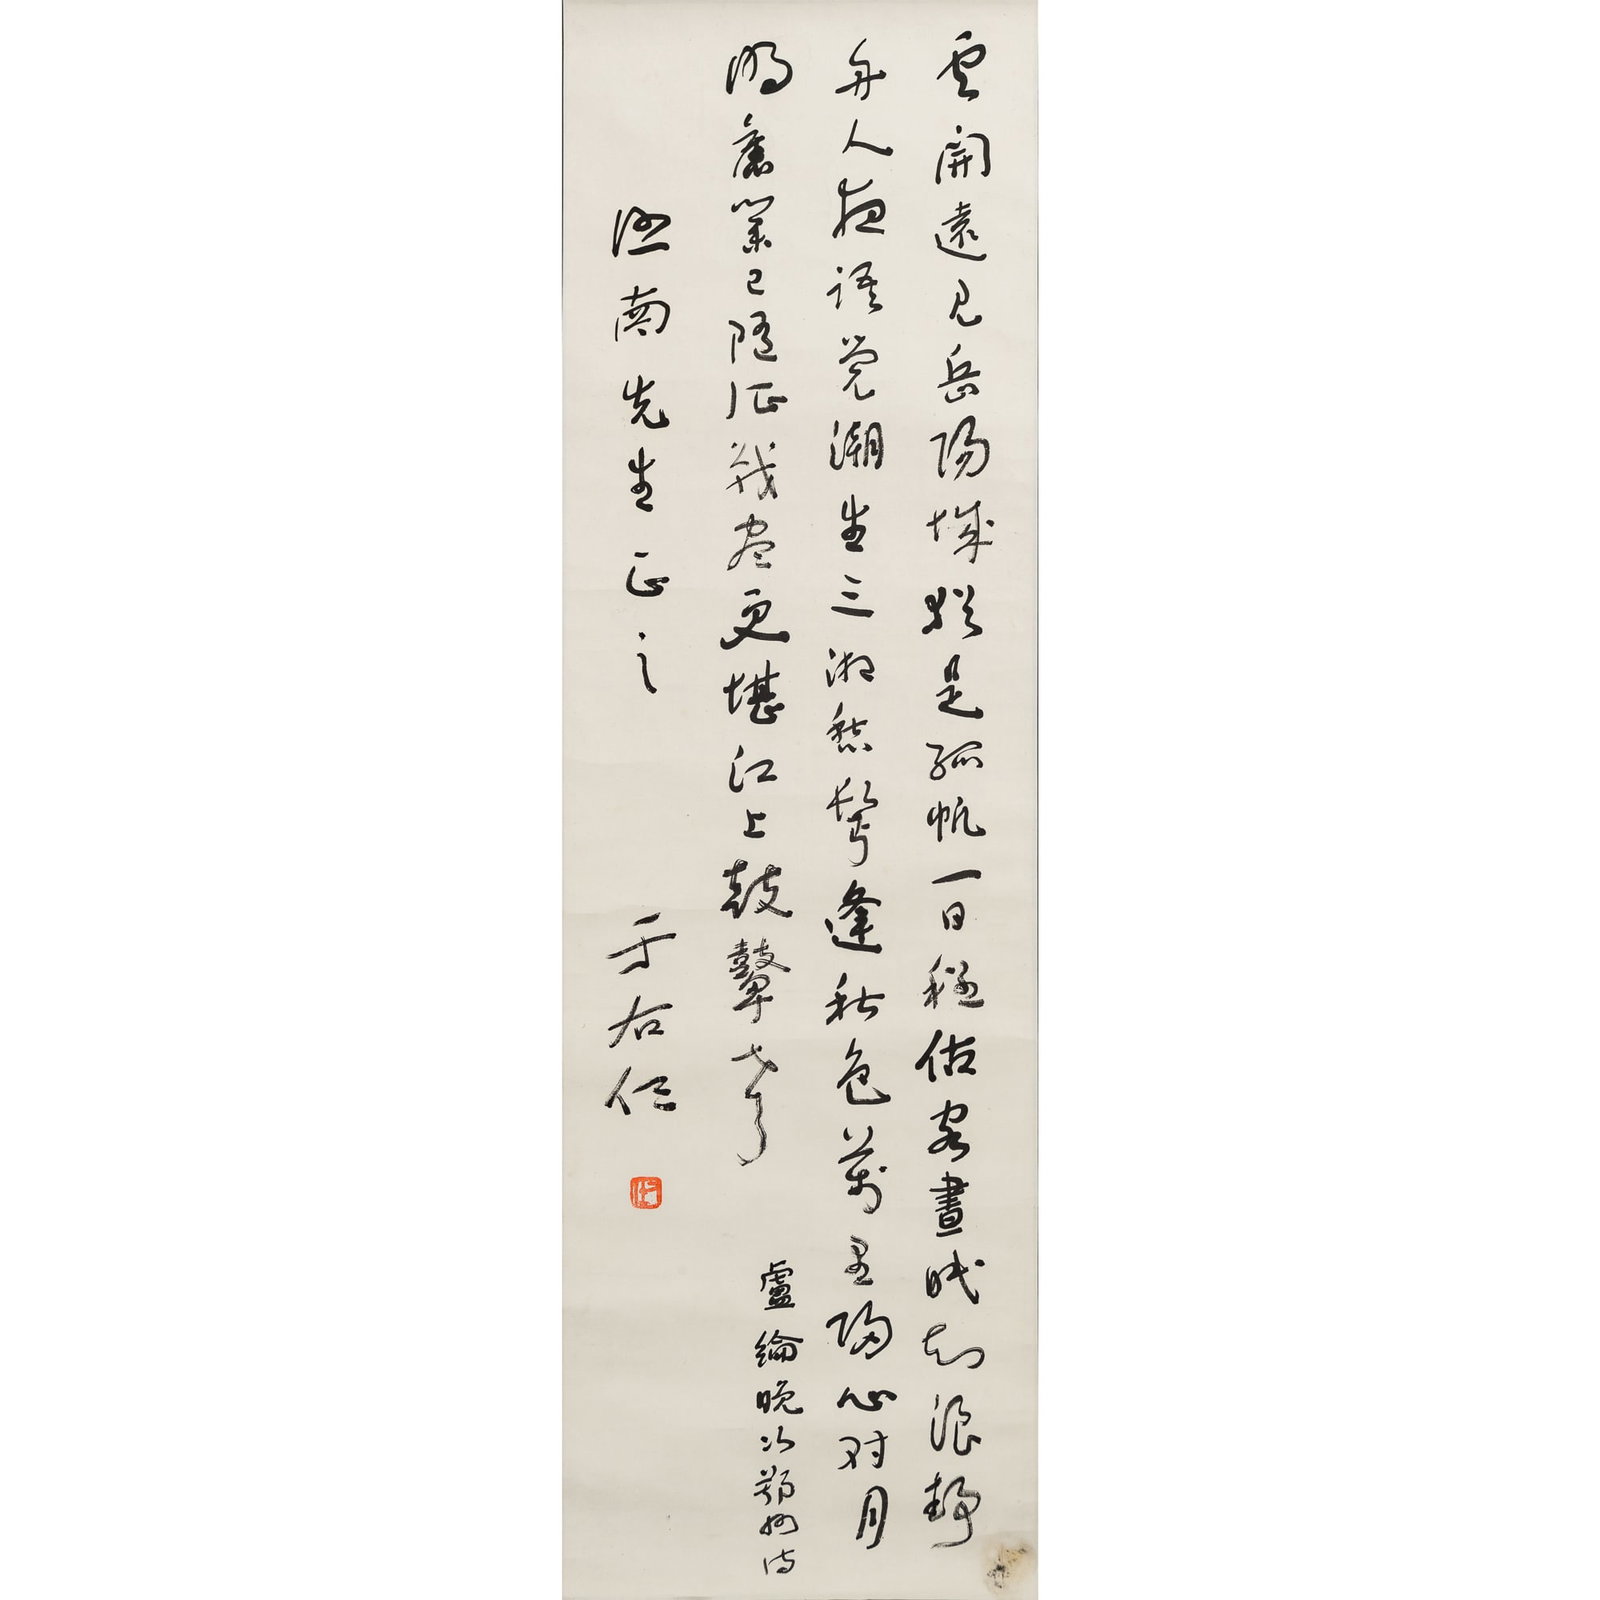 雲開遠見岳陽城猶是孤帆一日程估客晝眠知浪靜
舟人夜語覺潮生三湘愁鬢逢秋色萬里歸心對月
明舊業已隨征戰盡更堪江上鼓鼙聲
盧綸晚次鄂州詩
南先生正之
于右任